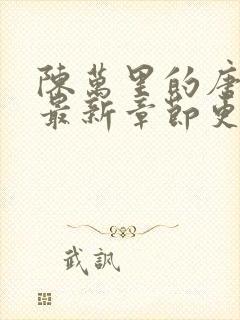 陳萬里的唐
最新章節更
武訊